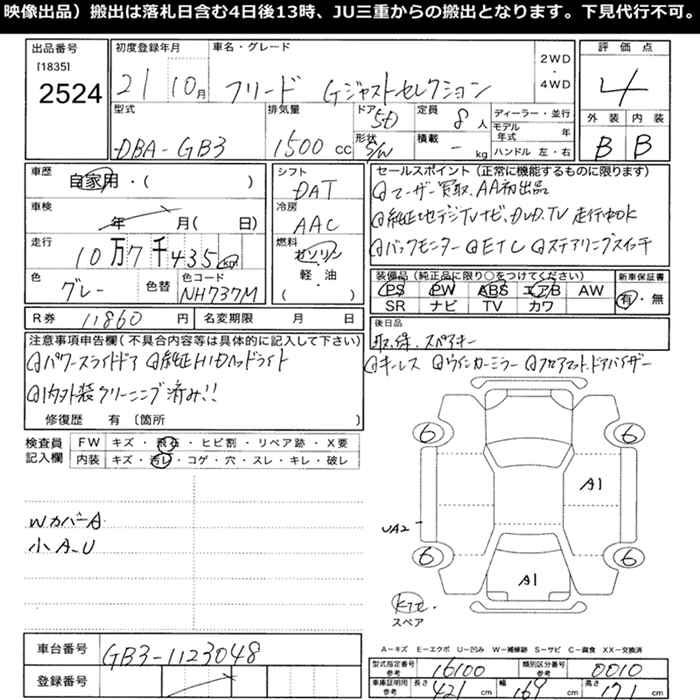 映像出品）搬出は落札日含む4日後13時、JU三重からの搬出となります。下見代行不可。
出品番号
[1835]
2524
初度登録年月
21 10月
車名・グレード
フリード Gジャストセレクション
2WD
・
4WD
評価点
4
外装 内装
B B
型式
DBA-GB3
排気量
1500 cc
ドア
5D
形状
S/W
定員
8人
積載
- kg
ディーラー・並行
モデル年式 年
ハンドル 左・右
車歴
自家用・( )
車検
年 月( 日)
走行
10万7千435km
色
グレー
色替
色コード
NH737M
シフト
DAT
冷房
AAC
燃料
ガソリン
・
軽・油
( )
セールスポイント(正常に機能するものに限ります)
@ユーザー買取、AA初出品
@純正地デジTVナビ、DVD、TV 走行中OK
@バックモニター @ETC @ステアリングスイッチ
装備品(純正品に限り○をつけてください)
PS PW ABS エアB AW
SR ナビ TV カワ
新車保証書
有・無
R券 11860円
名変期限 月 日
後日品
取、保、スペアキー
注意事項申告欄(不具合内容等は具体的に記入して下さい)
@パワースライドドア @純正HIDヘッドライト
@内外装クリーニング済み!!
修復歴 有 〔箇所 〕
@キーレス @ウインカーミラー @フロアマット、ドアバイザー
検査員
記入欄
FW キズ・飛石・ヒビ割・リペア跡・X要
内装 キズ・汚レ・コゲ・穴・スレ・キレ・破レ
Wカバー A
小A、U
6 6
A1
UA2
6 6
A1
スペア
A-キズ E-エクボ U-凹み W-補修跡 S-サビ C-腐食 XX-交換済
車台番号
GB3-1123048
登録番号
型式指定番号
参考
16100
類別区分番号
参考
0010
車庫証明用
参考
長さ 421 cm
幅 169 cm
高さ 171 cm